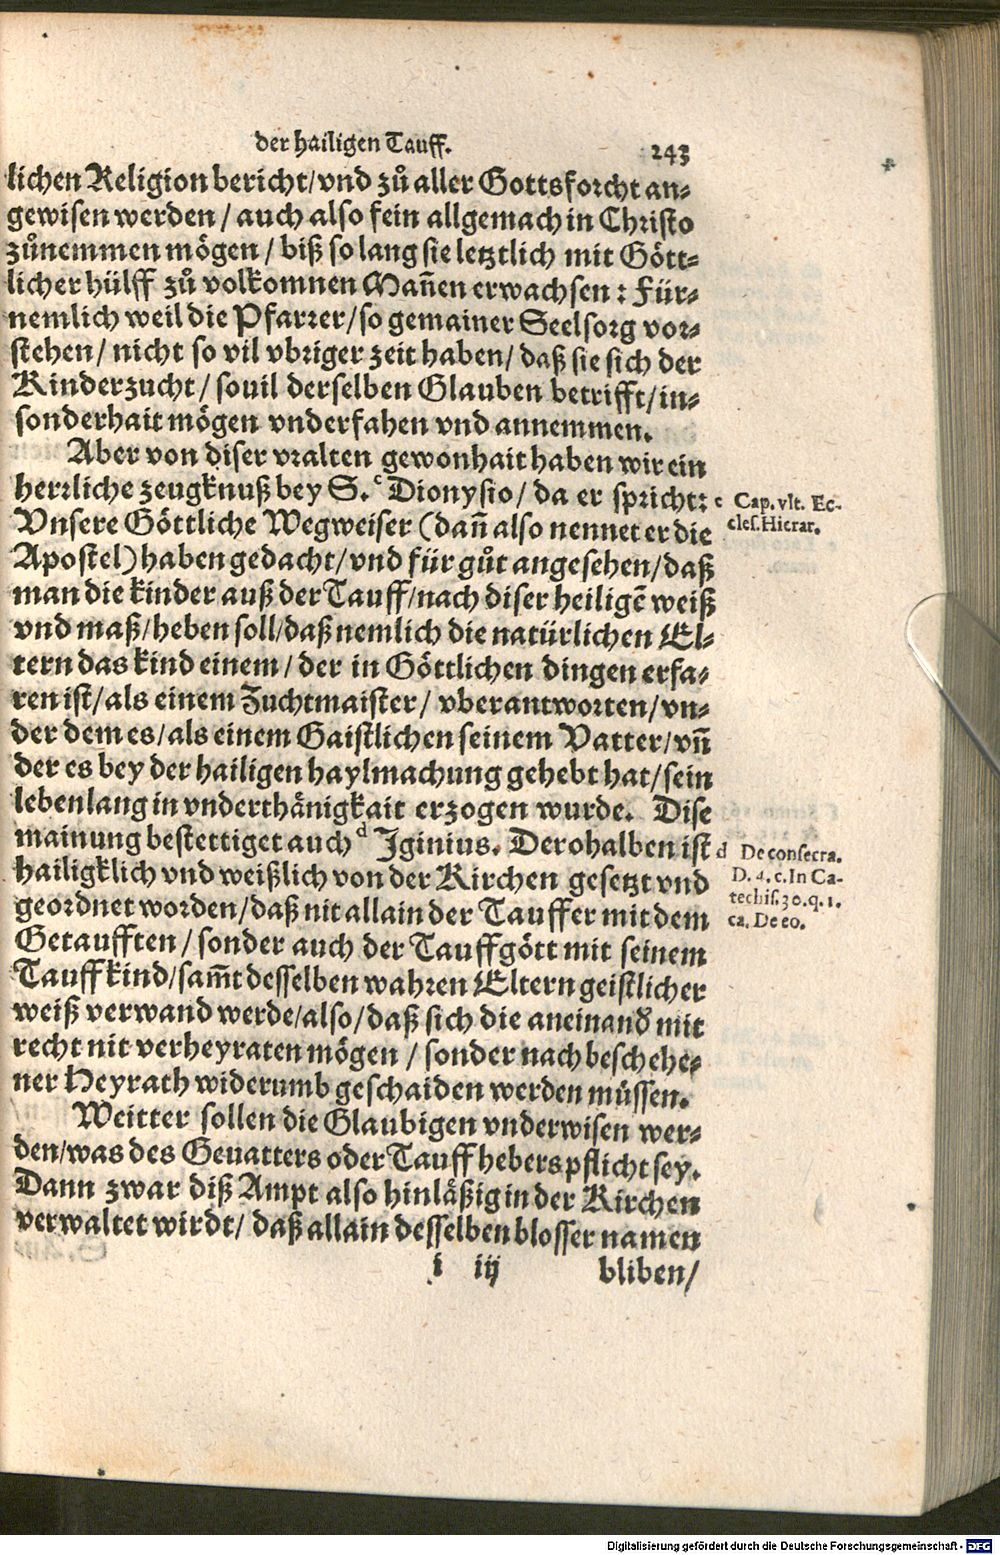 der hailigen Tauff. 243
lichen Religion bericht/vnd zů aller Gottsforcht an⸗
gewisen werden / auch also fein allgemach in Christo
zůnemmen mögen / biß so lang sie letztlich mit Gött⸗
licher hülff zů volkomnen Mañen erwachsen: Für⸗
nemlich weil die Pfarrer/so gemainer Seelsorg vor⸗
stehen/ nicht so vil vbriger zeit haben/ daß sie sich der
Kinderzucht/ souil derselben Glauben betrifft/in⸗
sonderhait mögen vnderfahen vnd annemmen.
Aber von diser vralten gewonhait haben wir ein
herrliche zeugknuß bey S. c Dionysio/ da er spricht:
c Cap. vlt. Ec-
cles. Hierar.
Vnsere Göttliche Wegweiser (dañ also nennet er die
Apostel) haben gedacht/vnd für gůt angesehen/daß
man die kinder auß der Tauff/nach diser heiligẽ weiß
vnd maß/heben soll/daß nemlich die natürlichen El⸗
tern das kind einem/ der in Göttlichen dingen erfa⸗
ren ist/als einem Zuchtmaister/ vberantworten/vn⸗
der dem es/als einem Gaistlichen seinem Vatter/vñ
der es bey der hailigen haylmachung gehebt hat/sein
lebenlang in vnderthänigkait erzogen wurde. Dise
mainung bestettiget auch d Iginius. Derohalben ist
d De consecra.
D. 4. c. In Ca-
techis. 30. q. 1.
ca. De eo.
hailigklich vnd weißlich von der Kirchen gesetzt vnd
geordnet worden/daß nit allain der Tauffer mit dem
Getaufften/ sonder auch der Tauffgött mit seinem
Tauffkind/sam̃t desselben wahren Eltern geistlicher
weiß verwand werde/also/daß sich die aneinand̕ mit
recht nit verheyraten mögen / sonder nach beschehe⸗
ner Heyrath widerumb geschaiden werden müssen.
Weitter sollen die Glaubigen vnderwisen wer⸗
den/was des Geuatters oder Tauffhebers pflicht sey.
Dann zwar diß Ampt also hinläßig in der Kirchen
verwaltet wirdt/ daß allain desselben blosser namen
i iij bliben/
Digitalisierung gefördert durch die Deutsche Forschungsgemeinschaft - DFG